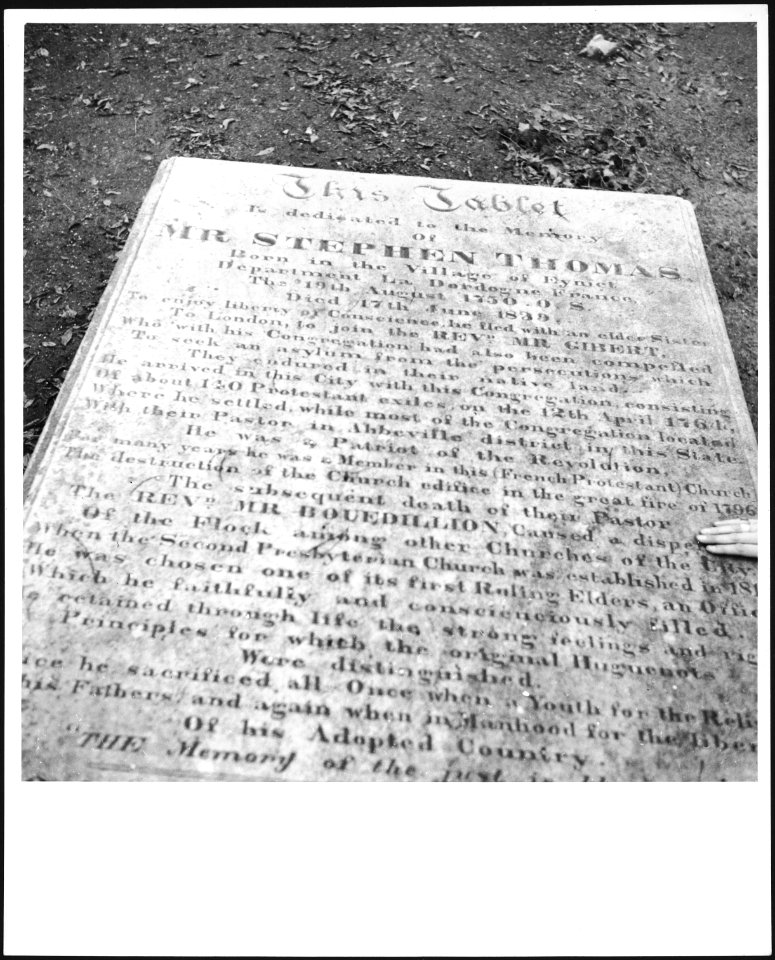 This Tablet
Is dedicated to the Memory
Of
MR STEPHEN THOMAS
Born in the Village of Eynict
Department La Dordogne France,
The 19th August 1750. O S.
Died 17th June 1839.
To enjoy liberty of Conscience, he fled with an elder Sister
To London, to join the REVD MR GIBERT,
Who with his Congregation had also been compelled
To seek an asylum from the persecutions which
They endured in their native land.
He arrived in this City with this Congregation, consisting
Of about 120 Protestant exiles, on the 12th April 1764.
Where he settled, while most of the Congregation located
With their Pastor in Abbeville district in this State.
He was a Patriot of the Revolution.
For many years he was a Member in this (French Protestant) Church
The destruction of the Church edifice in the great fire of 1796
The subsequent death of their Pastor
The REVD MR BOUEDILLION, Caused a
Of the Flock among other Churches of the
When the Second Presbyterian Church was established in
He was chosen one of its first Ruling Elders, an
Which he faithfully and conscienciously filled.
retained through life the strong feelings and
Principles for which the original Huguenots
Were distinguished.
he sacrificed all Once when a Youth for the
his Fathers, and again when in Manhood for the
Of his Adopted Country.
"THE Memory of the just is